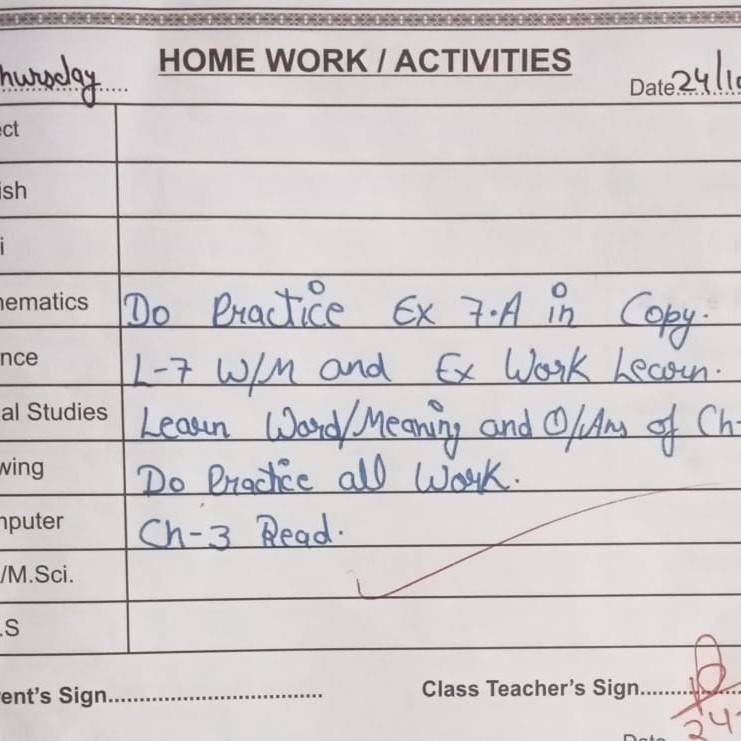 HOME WORK / ACTIVITIES
hursday Date 24/10
ect
ish
i
hematics Do Practice Ex 7.A in Copy.
nce L-7 W/M and Ex Work Learn.
al Studies Learn Word/Meaning and Q/Ans of Ch-
wing Do Practice all Work.
nputer Ch-3 Read.
/M.Sci.
.S
ent's Sign............ Class Teacher's Sign.......
24
Date